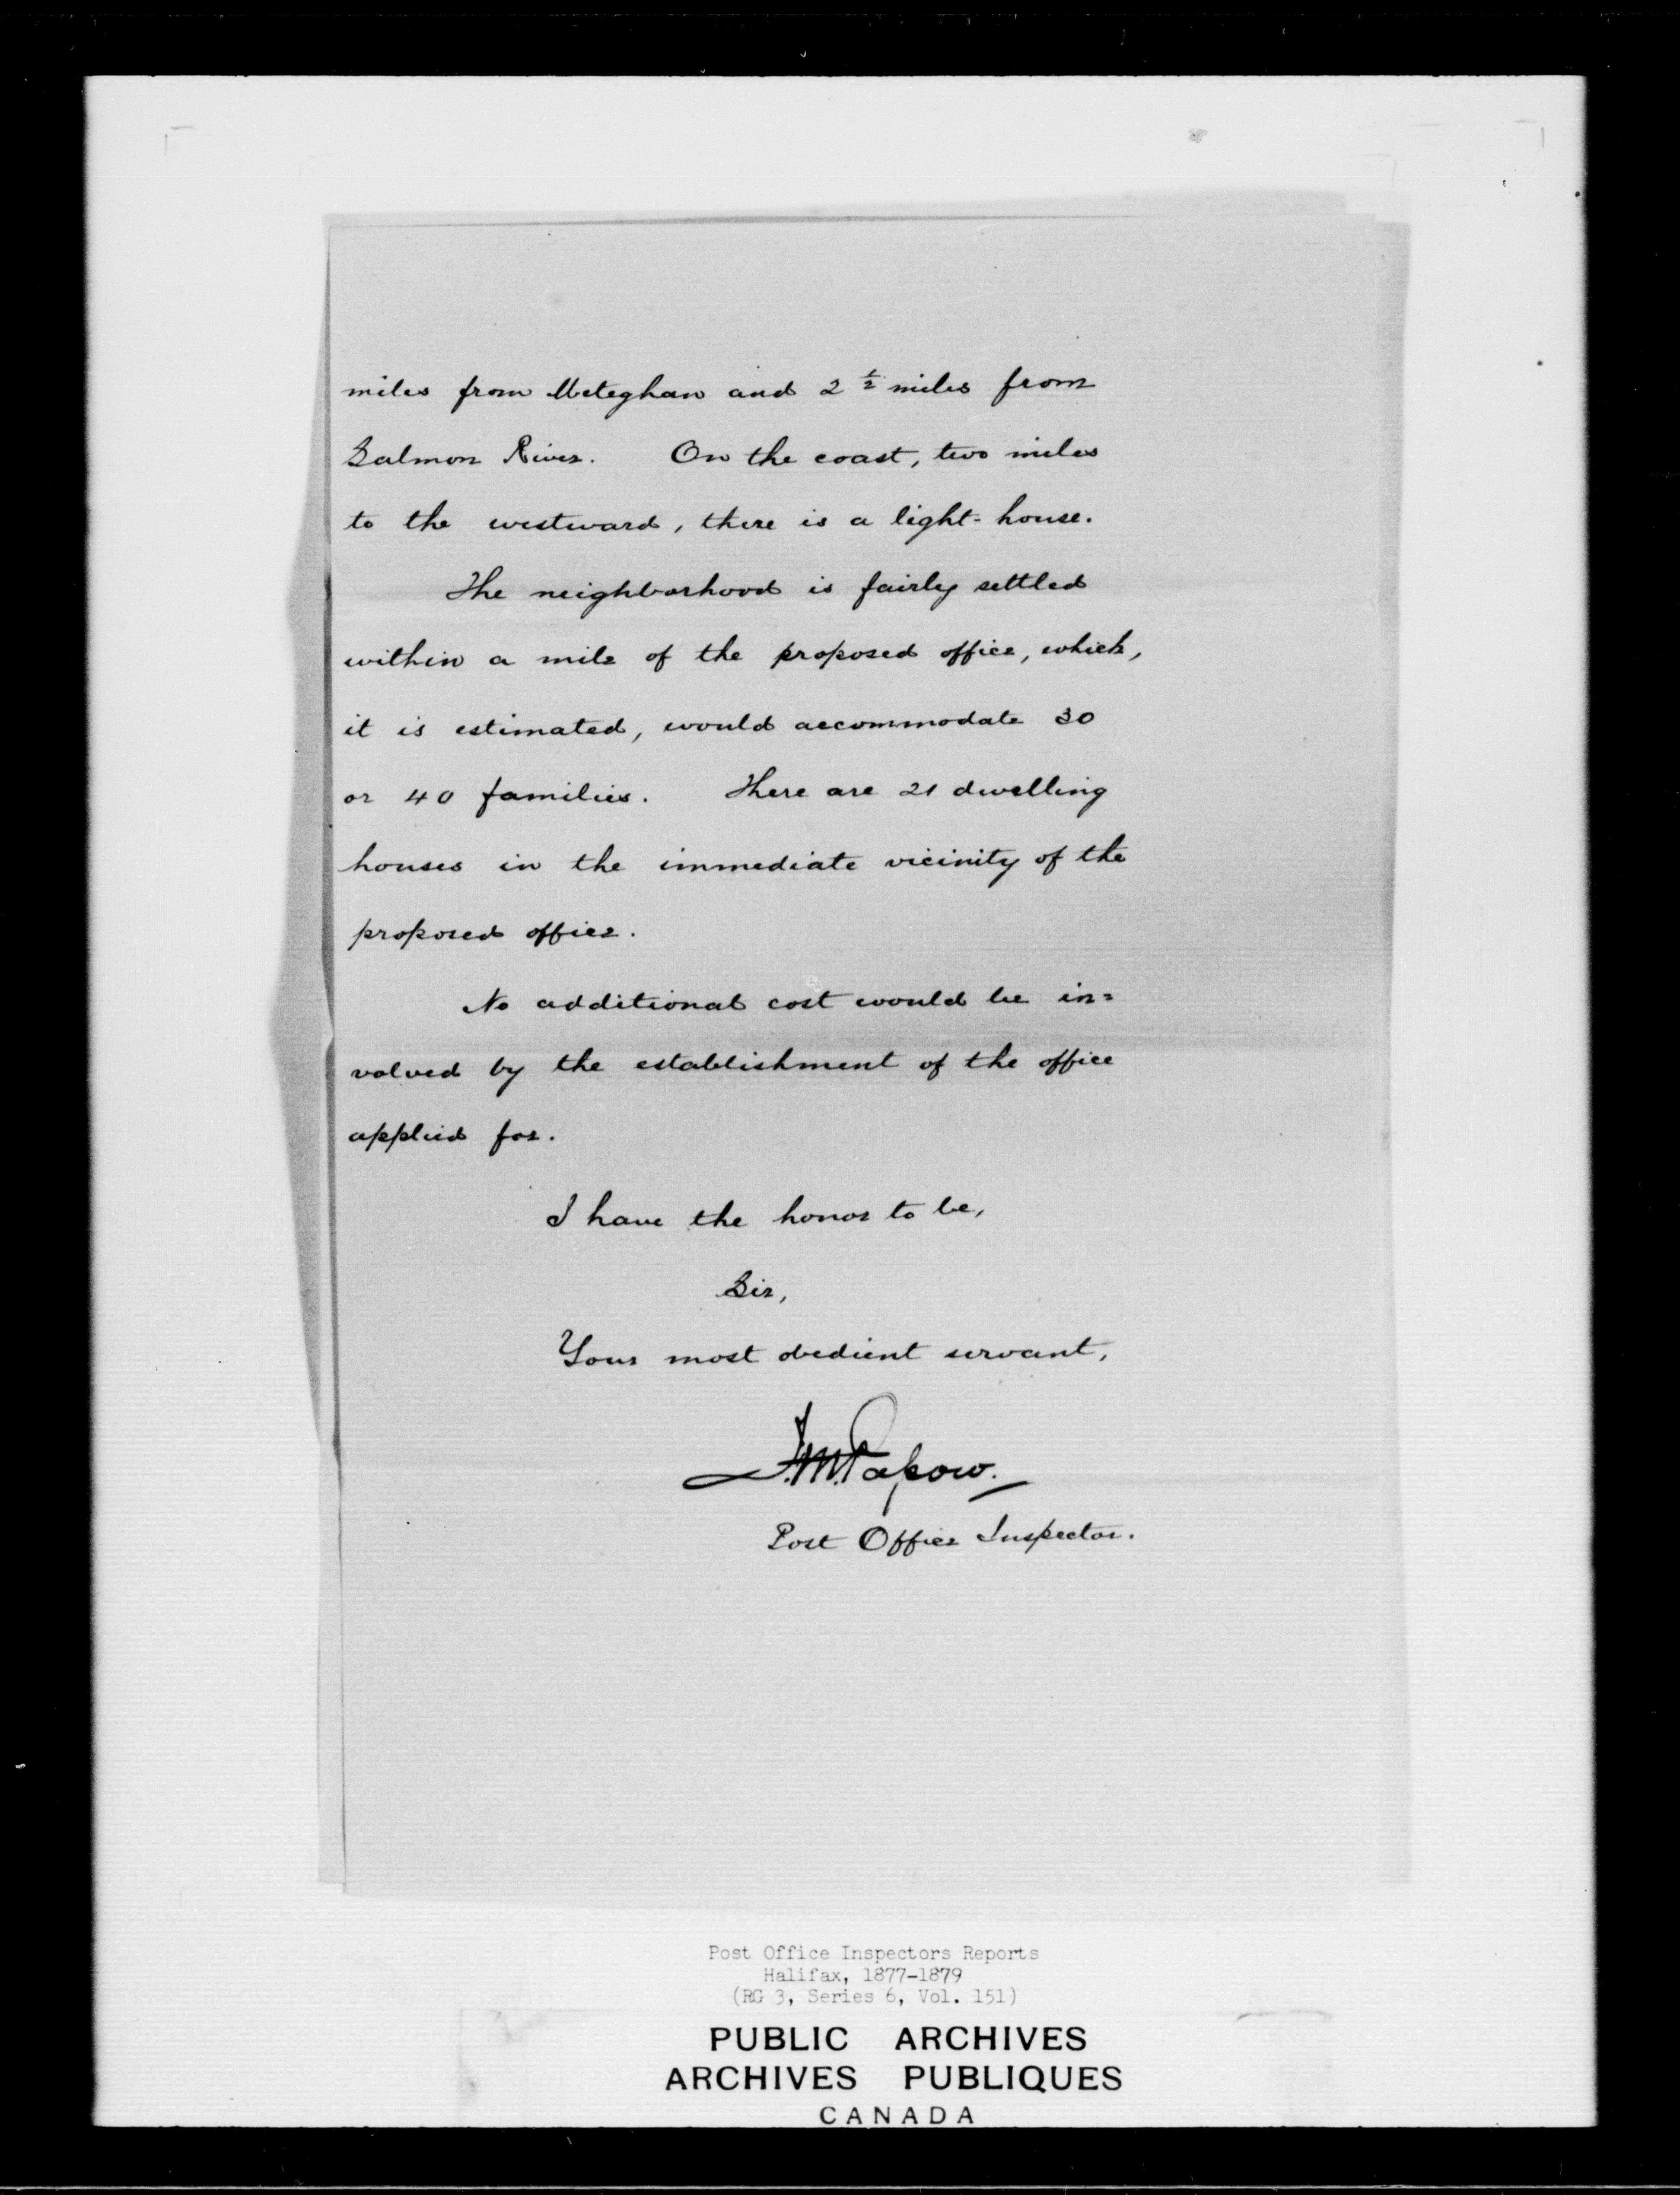 miles from Meteghan and 2 ½ miles from
Salmon River. On the coast, two miles
to the westward, there is a light-house.
The neighborhood is fairly settled
within a mile of the proposed office, which,
it is estimated, would accommodate 30
or 40 families. There are 21 dwelling
houses in the immediate vicinity of the
proposed office.
No additional cost would be in=
volved by the establishment of the office
applied for.
I have the honor to be,
Sir,
Your most obedient servant,
Post Office Inspector.
Post Office Inspectors Reports
Halifax, 1877-1879
(RG 3, Series 6, Vol. 151)
PUBLIC ARCHIVES
ARCHIVES PUBLIQUES
CANADA